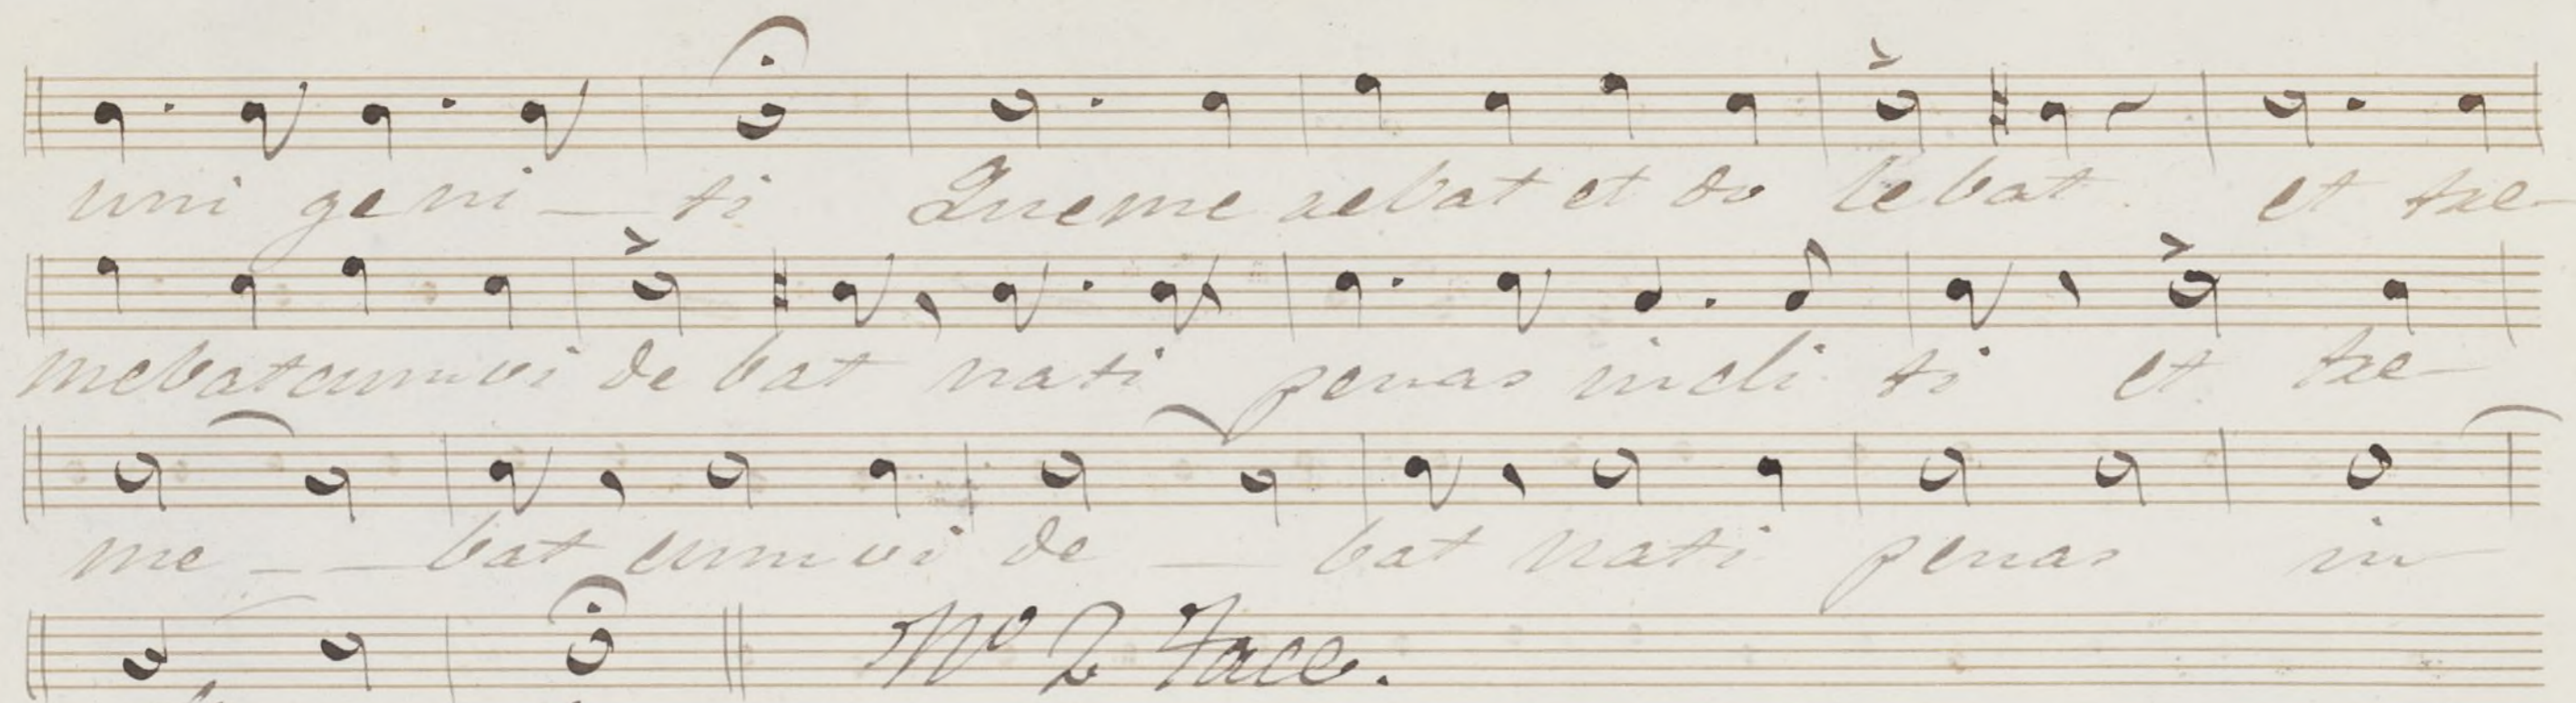 uni geni — ti Queme rebat et do lebat et tre-
mebat cum vi debat nati penas incli ti et tre-
me - - bat cum vi de — bat nati penas in
No 2 Tace.